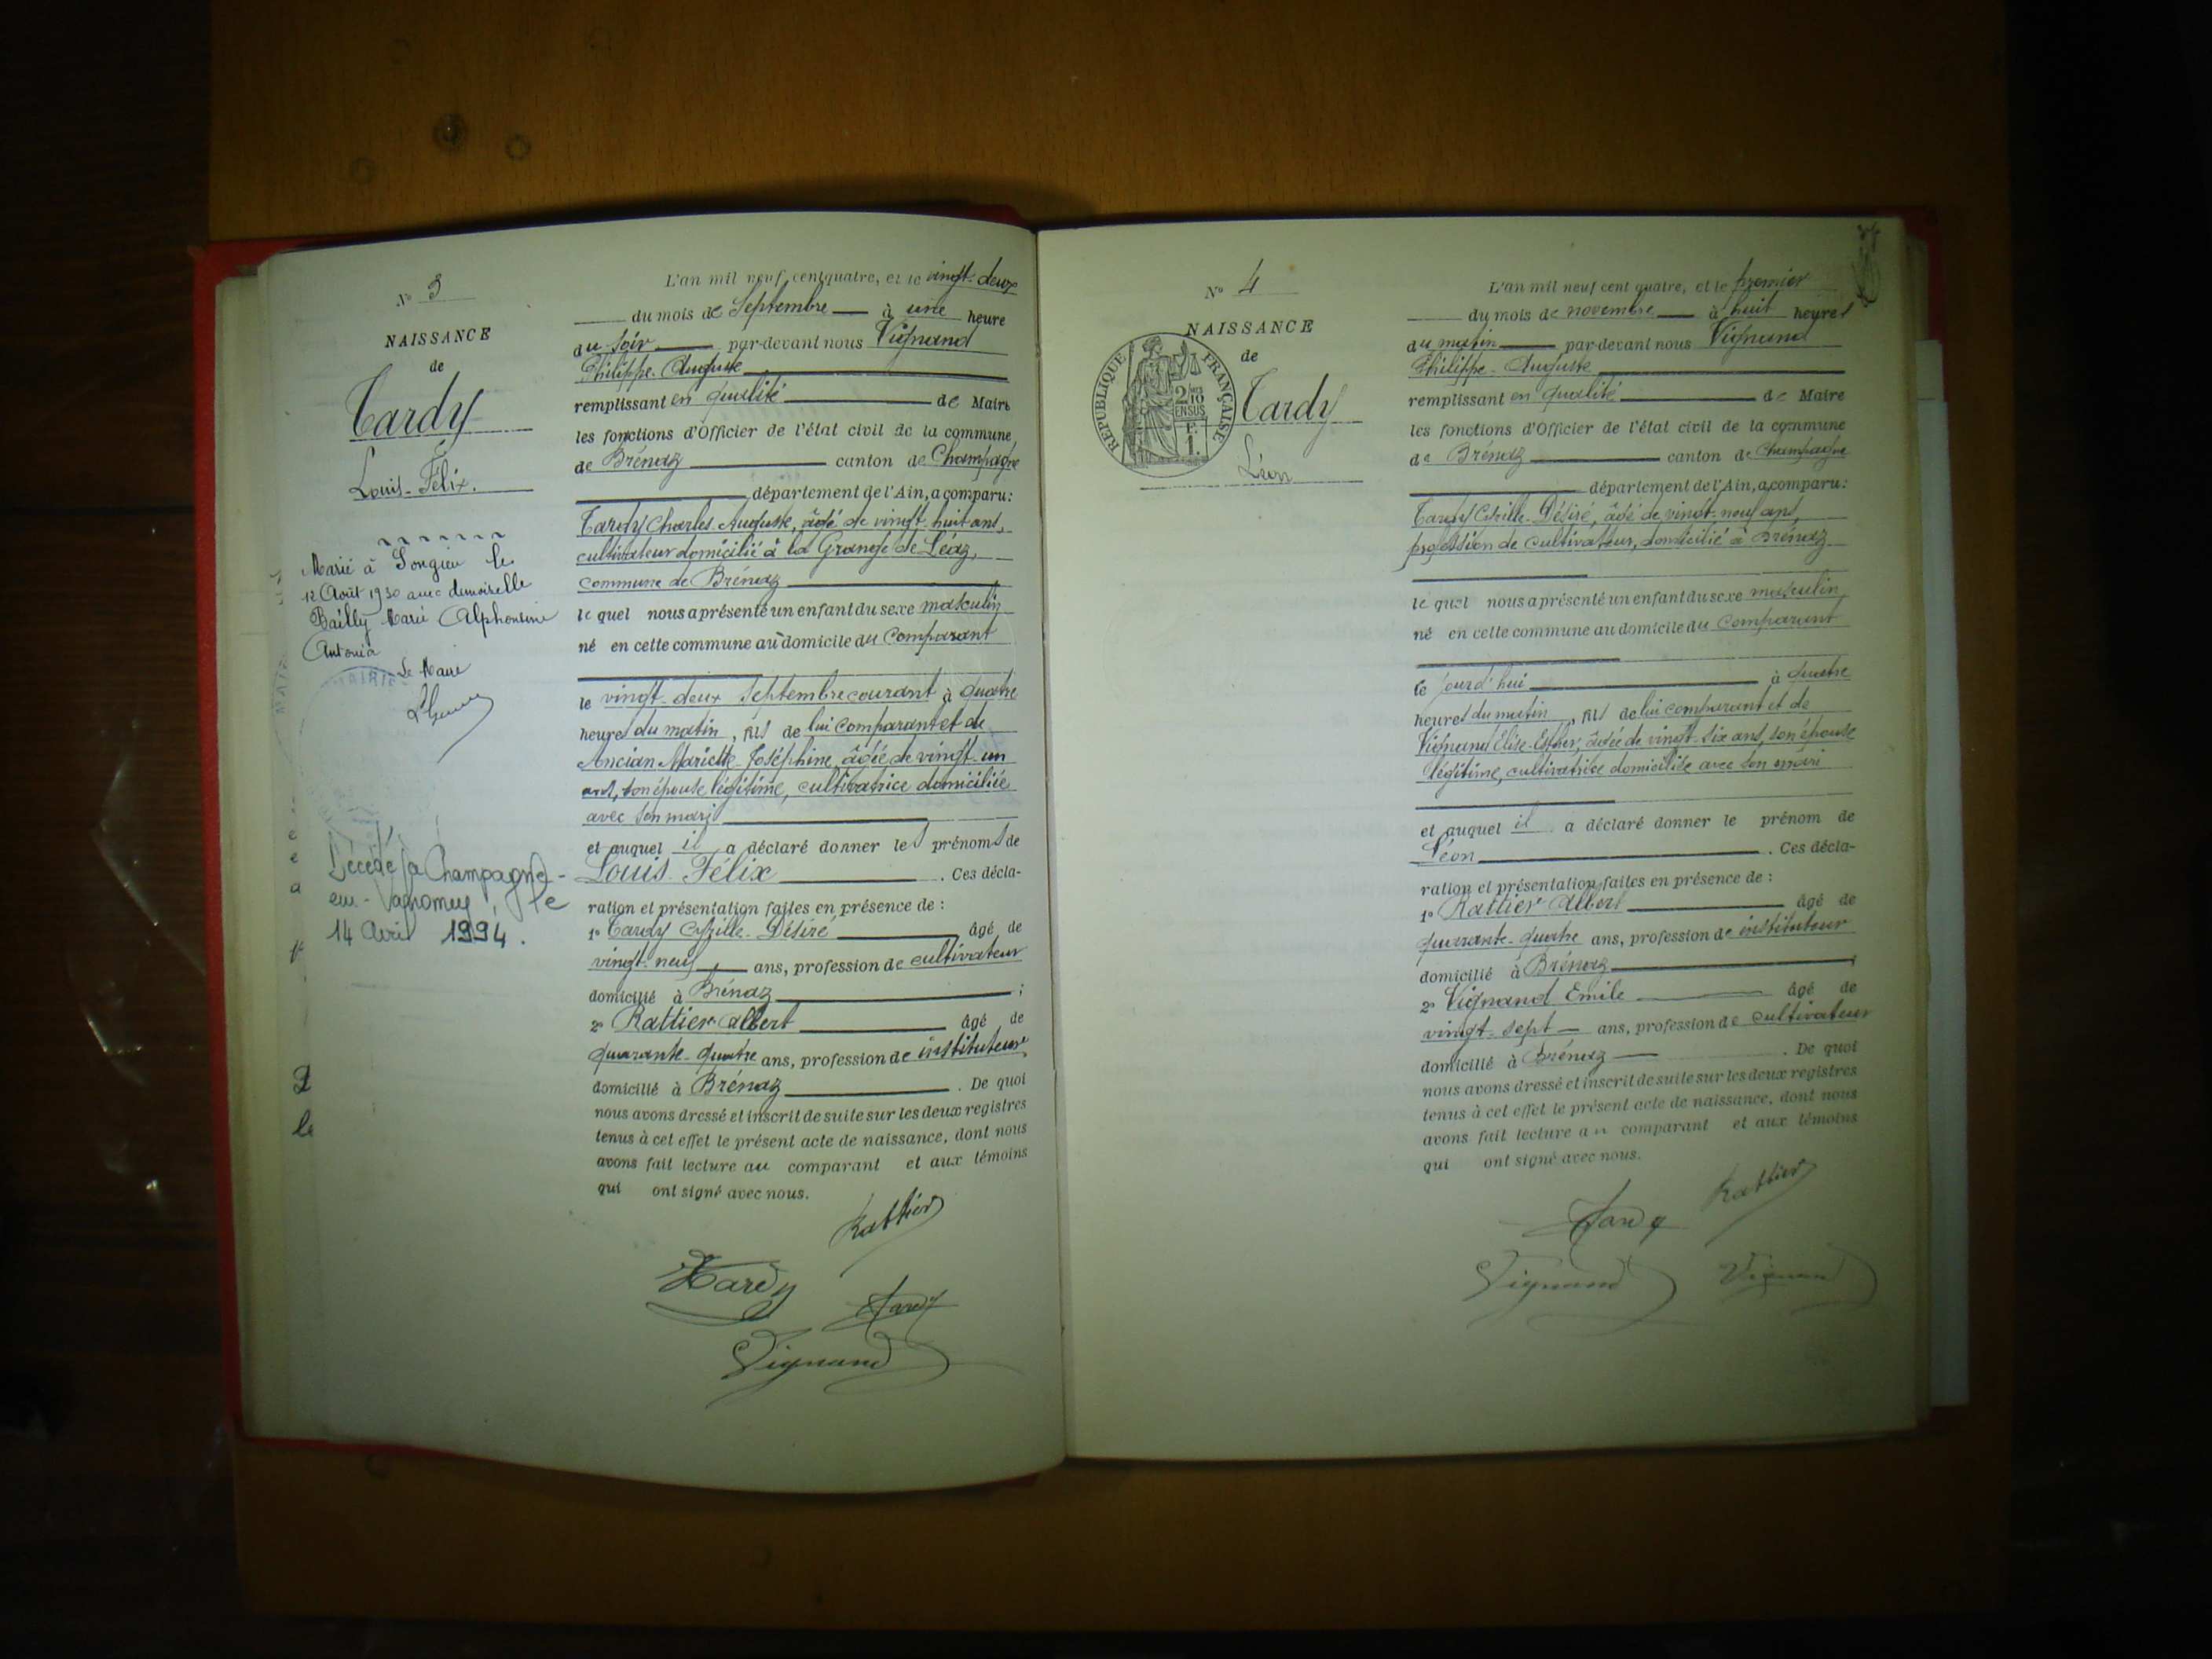 N° 3
NAISSANCE
de
Tardy
Louis-Félix.
Marié à Songieu le
12 Août 1930 avec demoiselle
Bailly Marie Alphonsine
Antonia
Le Maire
MAIRIE
Décédé à Champagne-
en-Valromey, le
14 Avril 1994.
L'an mil neuf cent quatre, et le vingt-deux
du mois de Septembre à une heure
du soir par-devant nous Vignand
Philippe-Auguste
remplissant en qualité de Maire
les fonctions d'Officier de l'état civil de la commune
de Brénaz canton de Champagne
département de l'Ain, a comparu:
Tardy Charles-Auguste, âgé de vingt-huit ans,
cultivateur domicilié à la Grange de Léaz,
commune de Brénaz
le quel nous a présenté un enfant du sexe masculin
né en cette commune au domicile du Comparant
le vingt-deux Septembre courant à quatre
heures du matin, fils de lui comparant et de
Ancian Mariette-Joséphine, âgée de vingt-un
ans, son épouse légitime, cultivatrice domiciliée
avec son mari
et auquel il a déclaré donner les prénoms de
Louis-Félix. Ces décla-
ration et présentation faites en présence de :
1° Tardy Cyrille-Désiré âgé de
vingt-neuf ans, profession de cultivateur
domicilié à Brénaz ;
2° Rattier Albert âgé de
quarante-quatre ans, profession de instituteur
domicilié à Brénaz. De quoi
nous avons dressé et inscrit de suite sur les deux registres
tenus à cet effet le présent acte de naissance, dont nous
avons fait lecture au comparant et aux témoins
qui ont signé avec nous.
Rattier
Tardy
Tardy
Vignand
N° 4
NAISSANCE
de
RÉPUBLIQUE FRANÇAISE
2/10
EN SUS
1 F.
Tardy
Léon
L'an mil neuf cent quatre, et le premier
du mois de novembre à huit heures
du matin par-devant nous Vignand
Philippe-Auguste
remplissant en qualité de Maire
les fonctions d'Officier de l'état civil de la commune
de Brénaz canton de Champagne
département de l'Ain, a comparu:
Tardy Cyrille-Désiré, âgé de vingt-neuf ans,
profession de cultivateur, domicilié à Brénaz
le quel nous a présenté un enfant du sexe masculin
né en cette commune au domicile du Comparant
ce jourd'hui à quatre
heures du matin, fils de lui comparant et de
Vignand Elise-Esther, âgée de vingt-six ans, son épouse
légitime, cultivatrice domiciliée avec son mari
et auquel il a déclaré donner le prénom de
Léon. Ces décla-
ration et présentation faites en présence de :
1° Rattier Albert âgé de
quarante-quatre ans, profession de instituteur
domicilié à Brénaz ;
2° Vignand Emile âgé de
vingt-sept ans, profession de cultivateur
domicilié à Brénaz. De quoi
nous avons dressé et inscrit de suite sur les deux registres
tenus à cet effet le présent acte de naissance, dont nous
avons fait lecture au comparant et aux témoins
qui ont signé avec nous.
Rattier
Tardy
Vignand Vignand